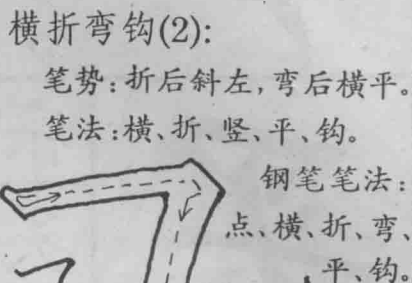 横折弯钩(2):
笔势:折后斜左,弯后横平。
笔法:横、折、竖、平、钩。
钢笔笔法:
点、横、折、弯、
平、钩。